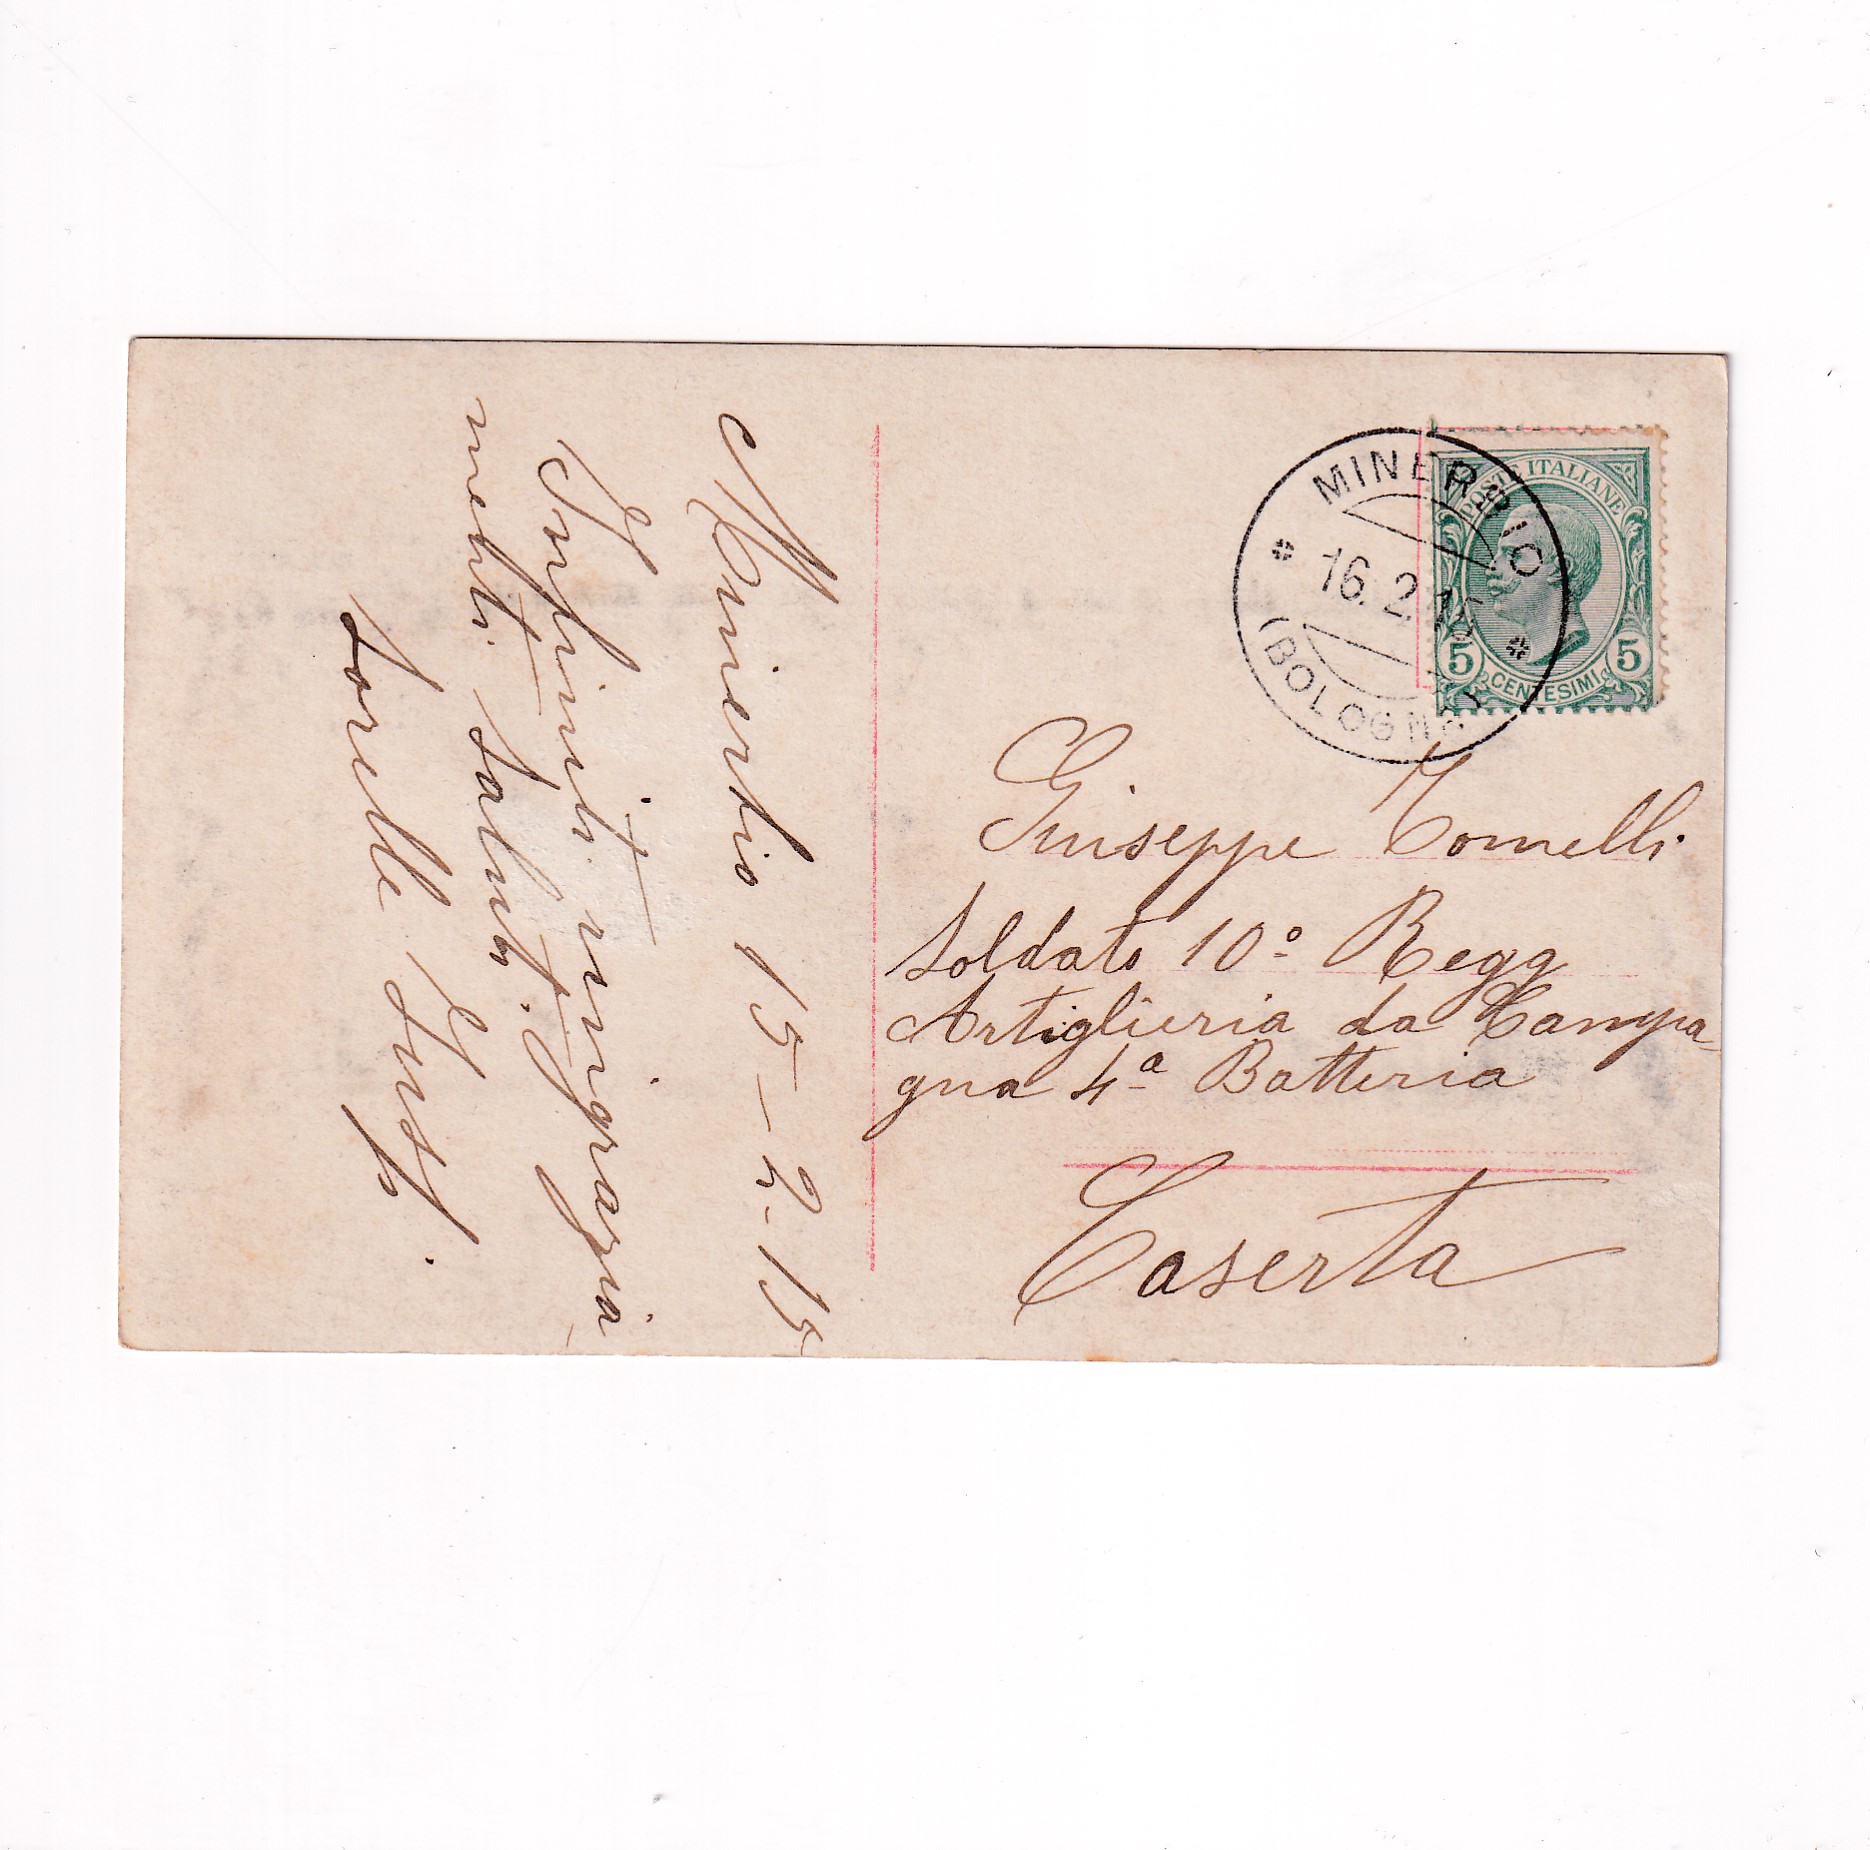 Minerbio 15-2-15
Infiniti ringrazia-
menti. Saluti.
Sorelle
MINERBIO
16.2.15
(BOLOGNA)
POSTE ITALIANE
5 CENTESIMI 5
Giuseppe Tomelli
Soldato 10º Regg
Artiglieria da Campa-
gna 4ª Batteria
Caserta